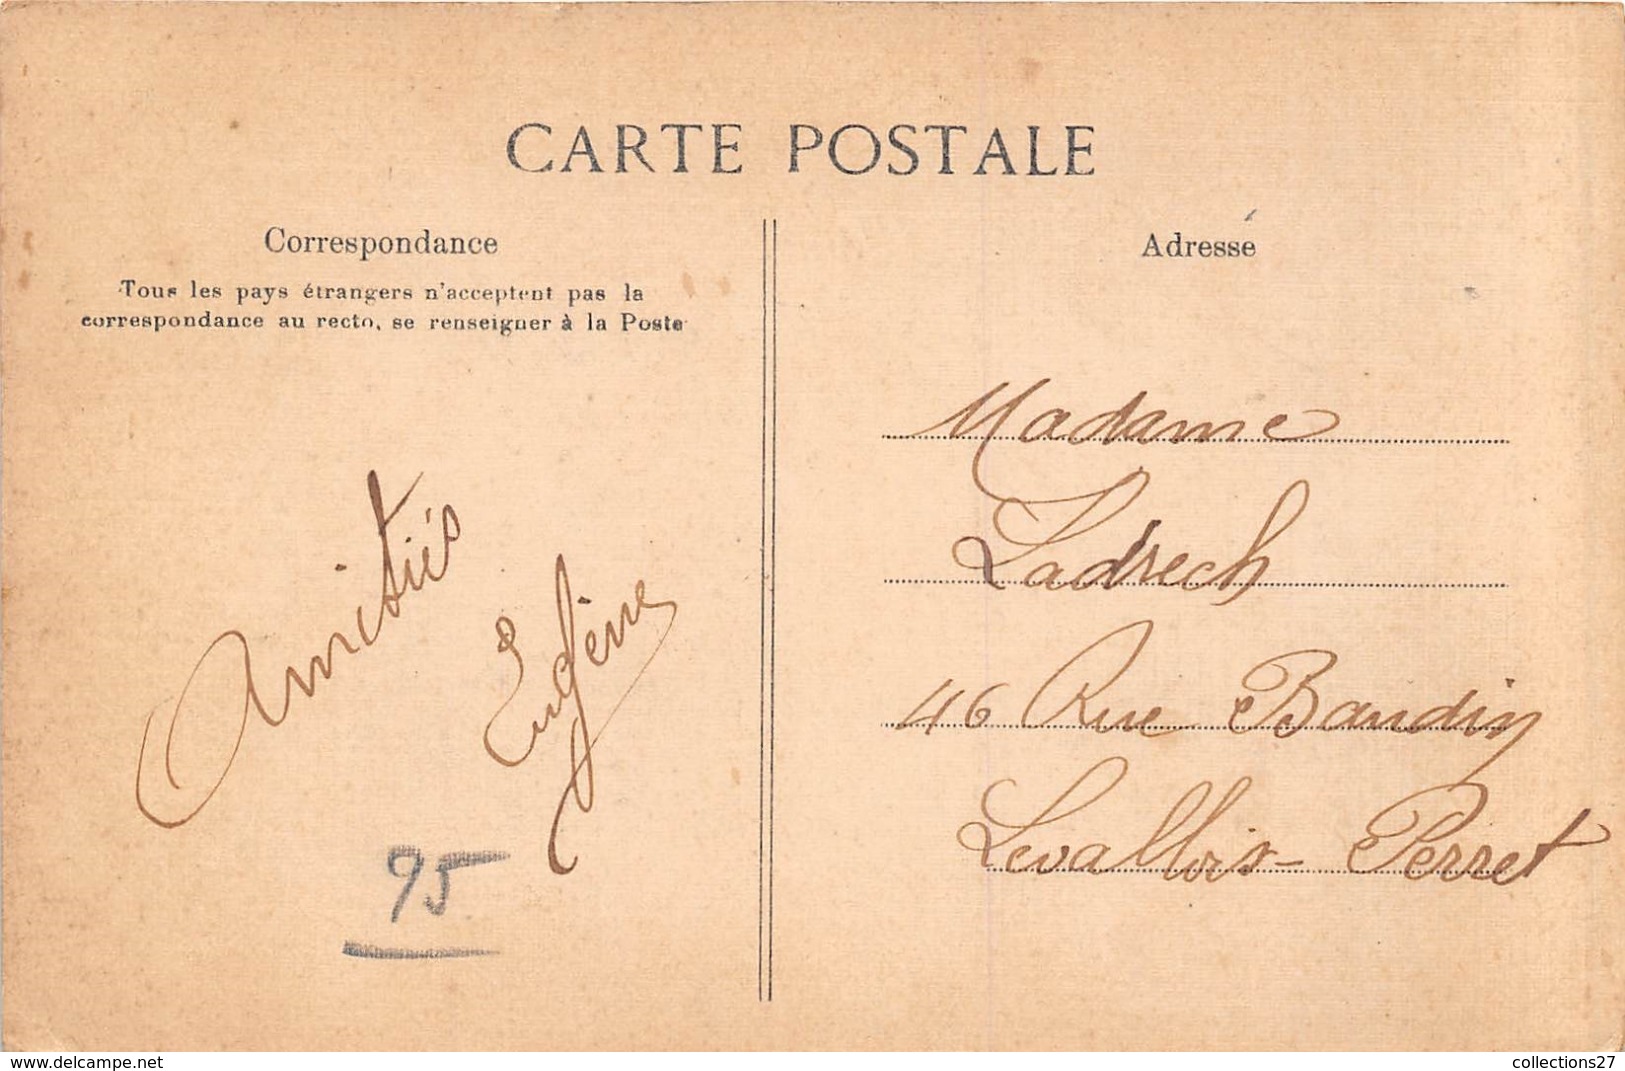 CARTE POSTALE
Correspondance
Tous les pays étrangers n'acceptent pas la
correspondance au recto, se renseigner à la Poste
Amitiés
Eugène
95
Adresse
Madame
Ladrech
46 Rue Baudin
Levallois-Perret
www.delcampe.net
collections27